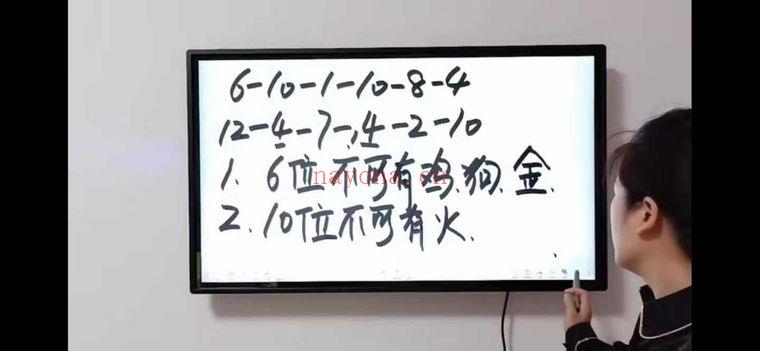 6-10-1-10-8-4
12-4-7-4-2-10
1. 6位不可有鸡.狗.金.
nayona.cn
2. 10位不可有火.